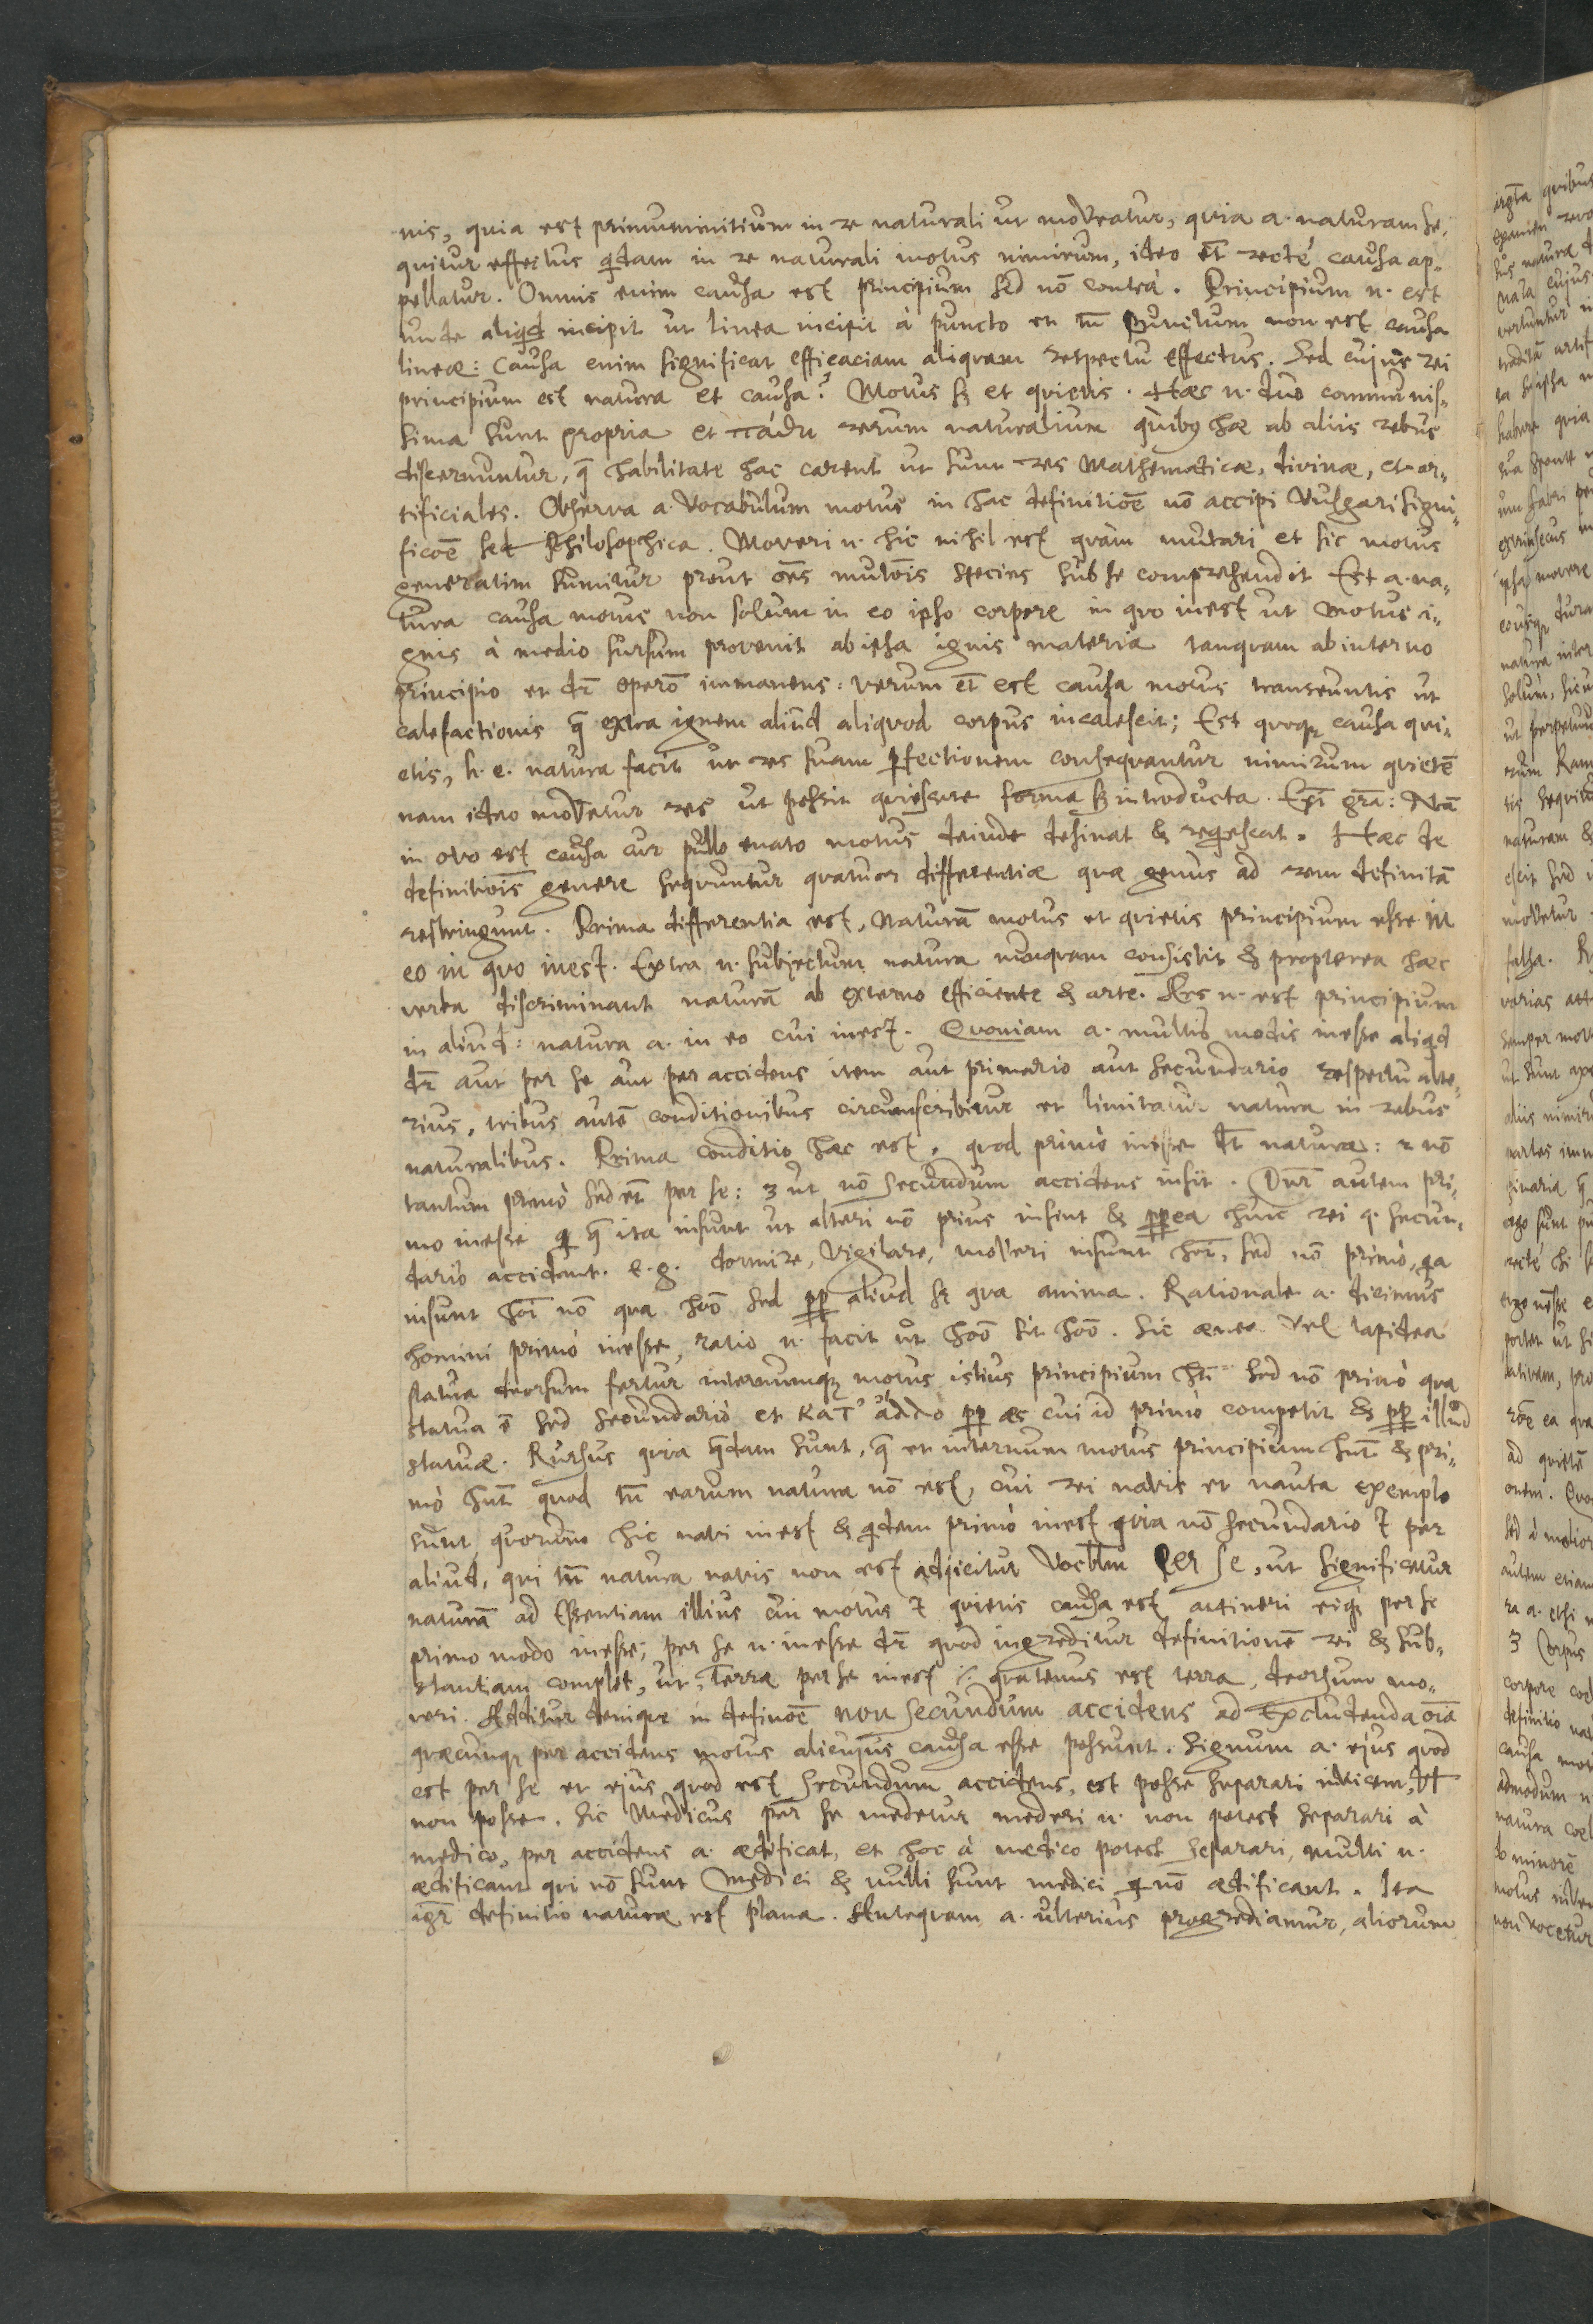 nis, quia est primum initium in re naturali ut moveatur, quia a. naturam se¬
quitur effectus qdam in re naturali motus nimirum, ideo et̄ rectè causa ap¬
pellatur. Omnis enim causa est principium sed nō contrà. Principium n. est
unde aliqd incipit ut linea incipit à puncto et tn̄ punctum non est causa
lineæ: Causa enim significat efficaciam aliquam respectu effectus. Sed cujus rei
principium est natura et causa? Motus s et quietis. Hæc n. duo communis¬
sima sunt propria et πάθη rerum naturalium quibꝫ hæ ab aliis rebus
discernuntur, q̄ habilitate hac carent ut sunt res Mathematicæ, divinæ, et ar¬
tificiales. Observa a. vocabulum motus in hac definitiōe nō accipi vulgari signi¬
ficōe sed Philosophica. Moveri n. hic nihil est quàm mutari et sic motus
generatim sumitur prout oēs mutōis species sub se comprehendit Est a. na¬
tura causa motus non solum in eo ipso corpore in quo inest ut motus i¬
gnis à medio sursum provenit ab ipsa ignis materia tanquam ab interno
principio et dr̄ operō immanens: verum et̄ est causa motus transeuntis ut
calefactionis q̄ extra ignem aliud aliquod corpus incalescit; Est quoqꝫ causa qui¬
etis, h. e. natura facit ut res suam ꝑfectionem consequantur nimirum quietē
nam ideo movetur res ut possit quiescere forma s introducta. Exi grā: Nā
in ovo est causa cur pullo enato motus deinde desinat & reqescat. Hæc de
definitiōis genere sequuntur quatuor differentiæ quæ genus ad rem definitā
restringunt. Prima differentia est, naturā motus et quietis principium esse in
eo in quo inest. Extra n. subjectum natura nunquam consistit & propterea hæc
verba discriminant naturā ab externo efficiente & arte. Ars n. est principium
in aliud: natura a. in eo cui inest. Quoniam a. multis modis inesse aliqd
dr̄ aut per se aut per accidens item aut primario aut secundario respectu alte¬
rius, tribus autē conditionibus circumscribitur et limitatur natura in rebus
naturalibus. Prima conditio hæc est, quod primò inesse dt̄ natura: 2 nō
tantum primò sed et̄ per se: 3 ut nō secundum accidens insit. Dnr̄ autem pri¬
mo inesse q̄ ita insunt ut alteri nō prius insint & ꝓpea huic rei q. secun¬
dariò accidant. e. g. dormire, vigilare, moveri insunt hoī, sed nō primò, qa
insunt hoī nō qua hōo sed ꝓp aliud s qua anima. Rationale a. dicimus
homini primò inesse, ratio n. facit ut hōo sit hōo. Sic ænea vel lapidea
statua deorsum fertur internumqꝫ motus istius principium ht̄ sed nō primò qua
statua ē sed secundariò et κατ' ἄλλο ꝓp æs cui id primò competit & ꝓp illud
statuæ. Rursus quia q̄dam sunt, q̄ et internum motus principium hnt̄ & pri¬
mò hnt̄ quod tn̄ earum natura nō est, cui rei navis et nauta exemplo
sunt quorum hic navi inest & qdem primò inest quia nō secundario t per
aliud, qui tn̄ natura navis non est adjicitur vocblm Per se, ut significetur
naturā ad Essentiam illius cui motus t quietis causa est attineri eiqꝫ per se
primo modo inesse; per se n. inesse dr̄ quod ingreditur definitionē rei & sub¬
stantiam complet, ut, Terræ per se inest quatenus est terra, deorsum mo¬
veri. Additur deniqꝫ in definōe non secundum accidens ad excludenda oīa
quæcunqꝫ per accidens motus alicujus causa esse possunt. Signum a. ejus quod
est per se et ejus quod est secundum accidens, est posse separari invicem, vt
non posse. Sic Medicus per se medetur mederi n. non potest separari à
medico, per accidens a. ædificat, et hoc à medico potest separari, multi n.
ædificant qui nō sunt medici & nulli sunt medici q nō ædificant. Ita
igr̄ definitio naturæ est plana. Antequam a. ulterius progrediamur, aliorum